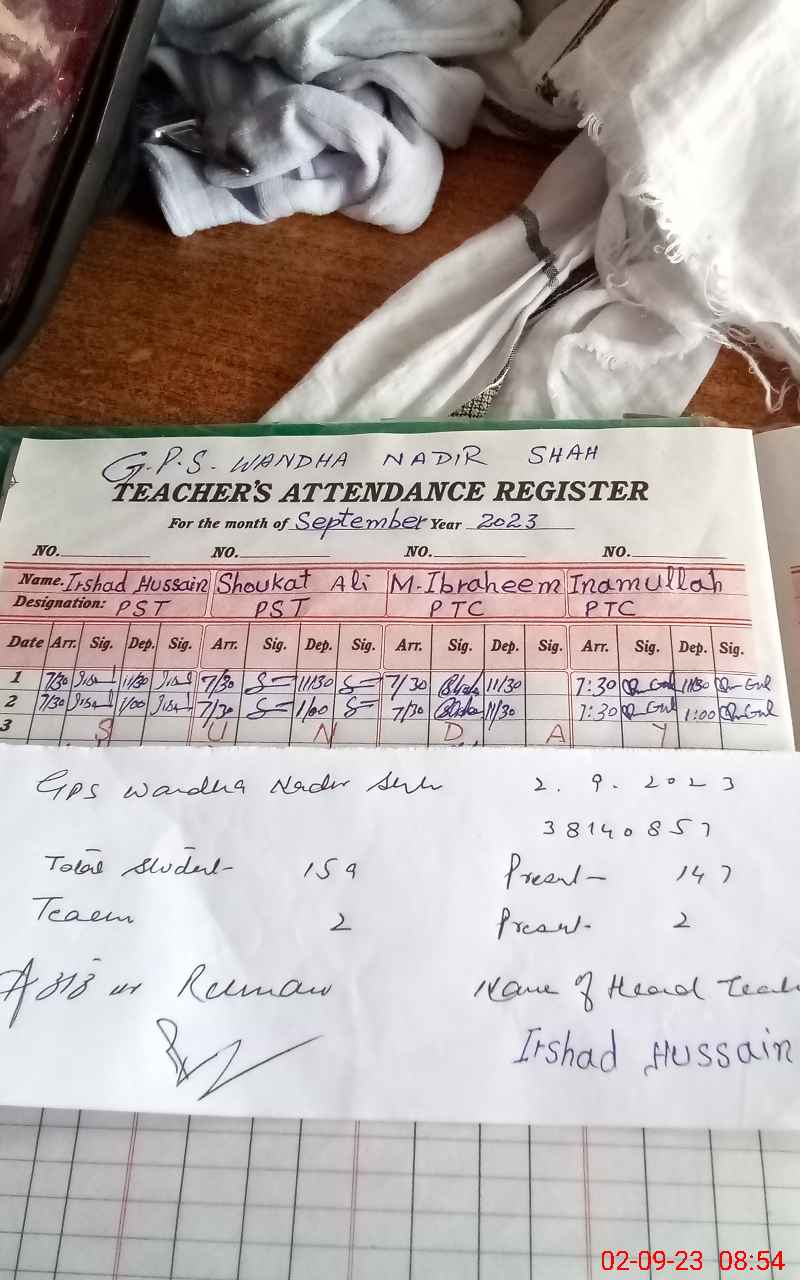 G.P.S. WANDHA NADIR SHAH
TEACHER'S ATTENDANCE REGISTER
For the month of September Year 2023
NO. NO. NO. NO.
Name. Irshad Hussain Shoukat Ali M. Ibraheem Inamullah
Designation: PST PST PTC PTC
Date Arr. Sig. Dep. Sig. Arr. Sig. Dep. Sig. Arr. Sig. Dep. Sig. Arr. Sig. Dep. Sig.
1 7/30 11/30 7/30 11/30 7/30 11/30 7:30 11/30
2 7/30 1/00 7/30 1/00 7/30 11/30 7:30 1:00
3 S U N D A Y
GPS Wandha Nadir 2.9.2023
38140857
Total Student- 159 Present- 147
2 Present- 2
Rehman Name of Head
Irshad Hussain
02-09-23 08:54